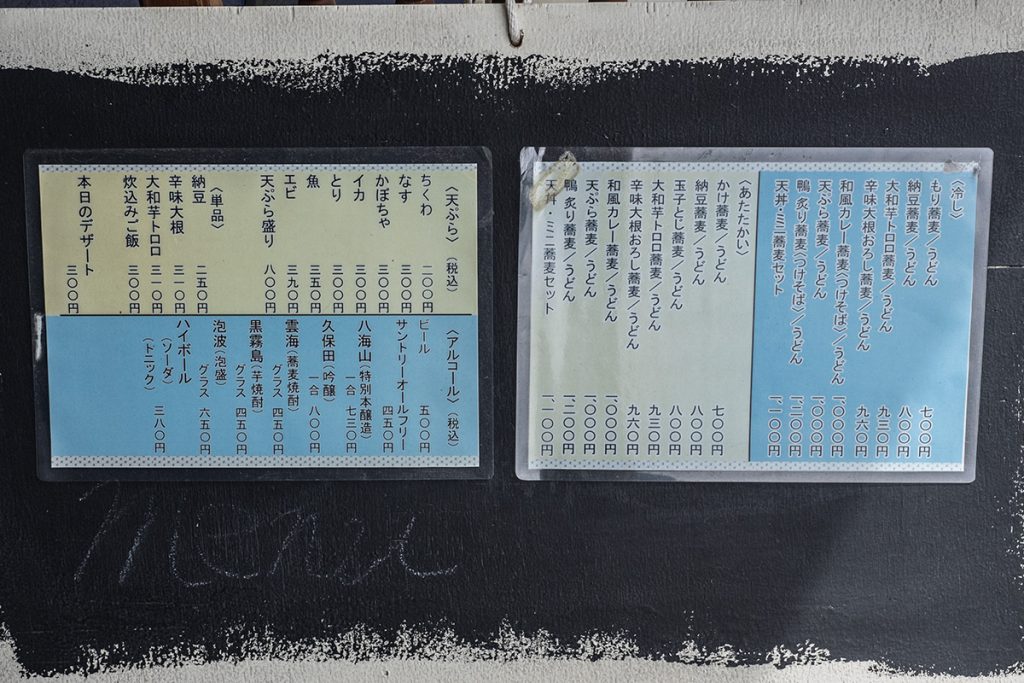 〈冷し〉
もり蕎麦／うどん 七〇〇円
納豆蕎麦／うどん 八〇〇円
大和芋トロロ蕎麦／うどん 九三〇円
辛味大根おろし蕎麦／うどん 九六〇円
和風カレー蕎麦（つけそば）／うどん 一、〇〇〇円
天ぷら蕎麦／うどん 一、〇〇〇円
鴨 炙り蕎麦（つけそば）／うどん 一、二〇〇円
天丼・ミニ蕎麦セット 一、一〇〇円
〈あたたかい〉
かけ蕎麦／うどん 七〇〇円
納豆蕎麦／うどん 八〇〇円
玉子とじ蕎麦／うどん 八〇〇円
大和芋トロロ蕎麦／うどん 九三〇円
辛味大根おろし蕎麦／うどん 九六〇円
和風カレー蕎麦／うどん 一、〇〇〇円
天ぷら蕎麦／うどん 一、〇〇〇円
鴨 炙り蕎麦／うどん 一、二〇〇円
天丼・ミニ蕎麦セット 一、一〇〇円
〈天ぷら〉（税込）
ちくわ 二〇〇円
なす 三〇〇円
かぼちゃ 三〇〇円
イカ 三〇〇円
とり 三〇〇円
魚 三五〇円
エビ 三九〇円
天ぷら盛り 八〇〇円
〈単品〉
納豆 二五〇円
辛味大根 三一〇円
大和芋トロロ 三一〇円
炊込みご飯 三〇〇円
本日のデザート 三〇〇円
〈アルコール〉（税込）
ビール 五〇〇円
サントリーオールフリー 四五〇円
八海山（特別本醸造） 一合 七三〇円
久保田（吟醸） 一合 八〇〇円
雲海（蕎麦焼酎） グラス 四五〇円
黒霧島（芋焼酎） グラス 四五〇円
泡波（泡盛） グラス 六五〇円
ハイボール 三八〇円
（ソーダ）
（トニック）
Menu